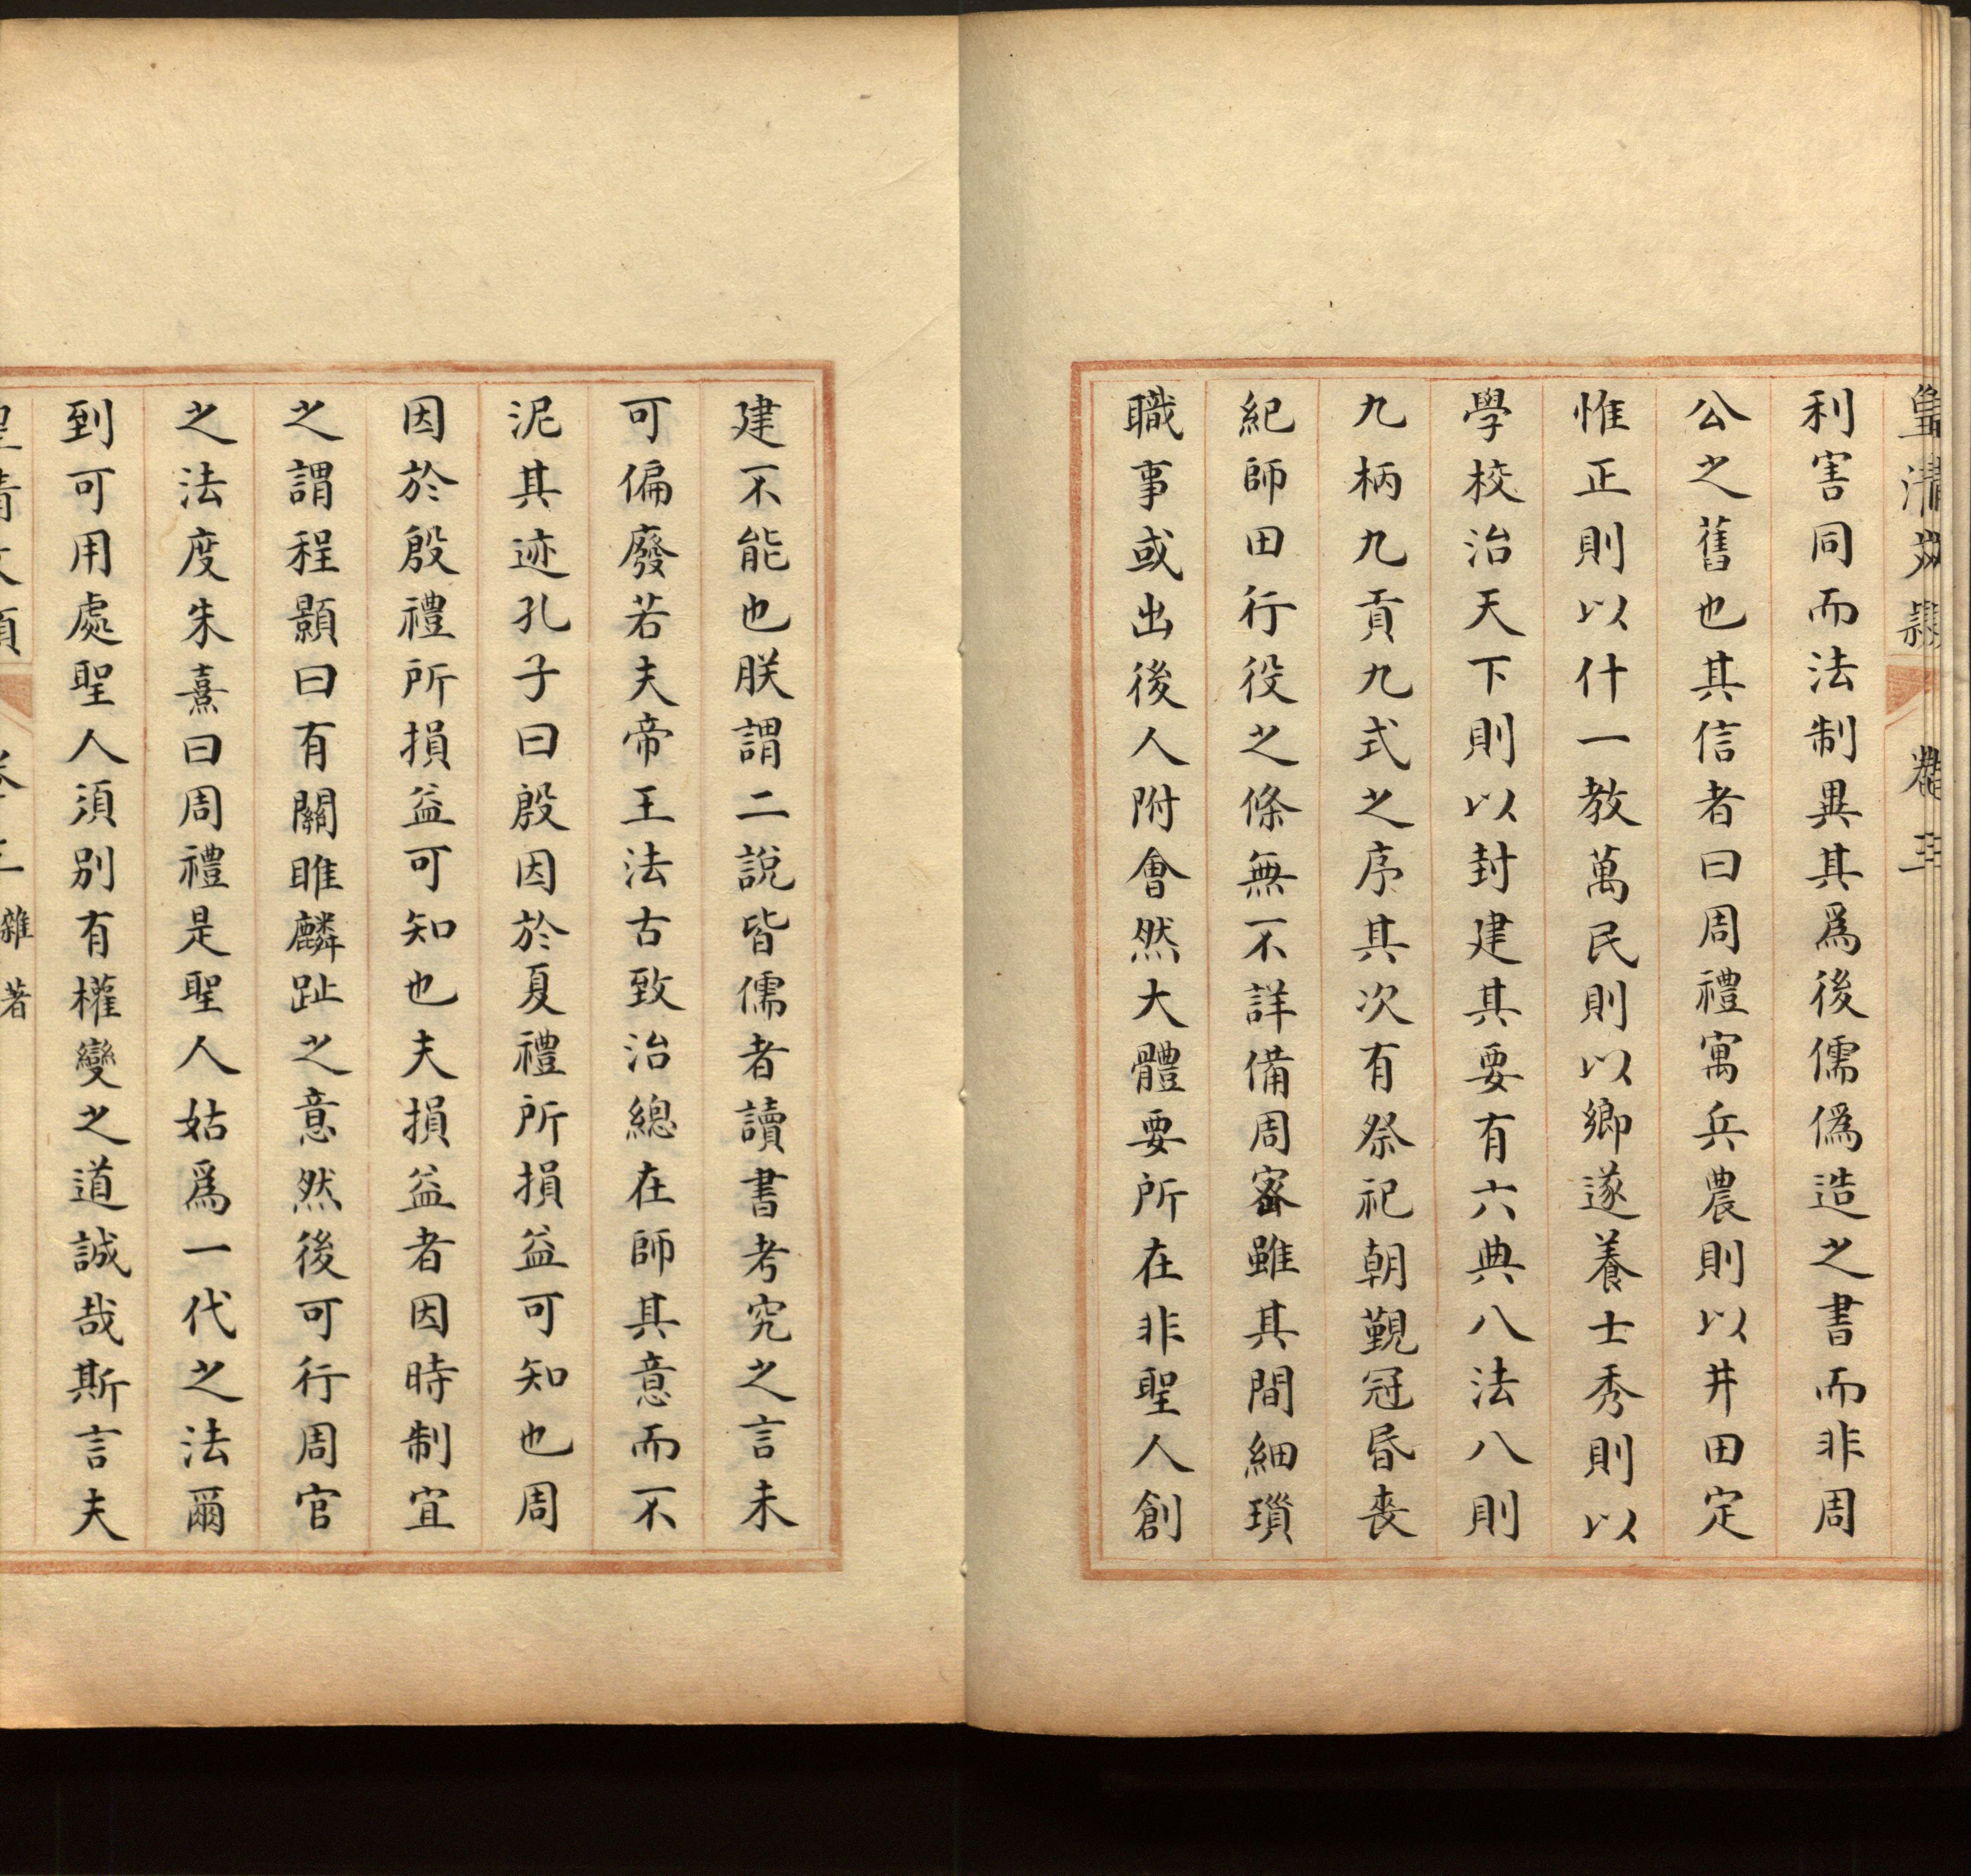 利害同而法制異其爲後儒僞造之書而非周
公之舊也其信者曰周禮寓兵農則以井田定
惟正則以什一教萬民則以鄉遂養士秀則以
學校治天下則以封建其要有六典八法八則
九柄九貢九式之序其次有祭祀朝覲冠昏喪
紀師田行役之條無不詳備周密雖其間細瑣
職事或出後人附會然大體要所在非聖人創
建不能也朕謂二說皆儒者讀書考究之言未
可偏廢若夫帝王法古致治總在師其意而不
泥其迹孔子曰殷因於夏禮所損益可知也周
因於殷禮所損益可知也夫損益者因時制宜
之謂程顥曰有關睢麟趾之意然後可行周官
之法度朱熹曰周禮是聖人姑爲一代之法爾
到可用處聖人須別有權變之道誠哉斯言夫
雜著